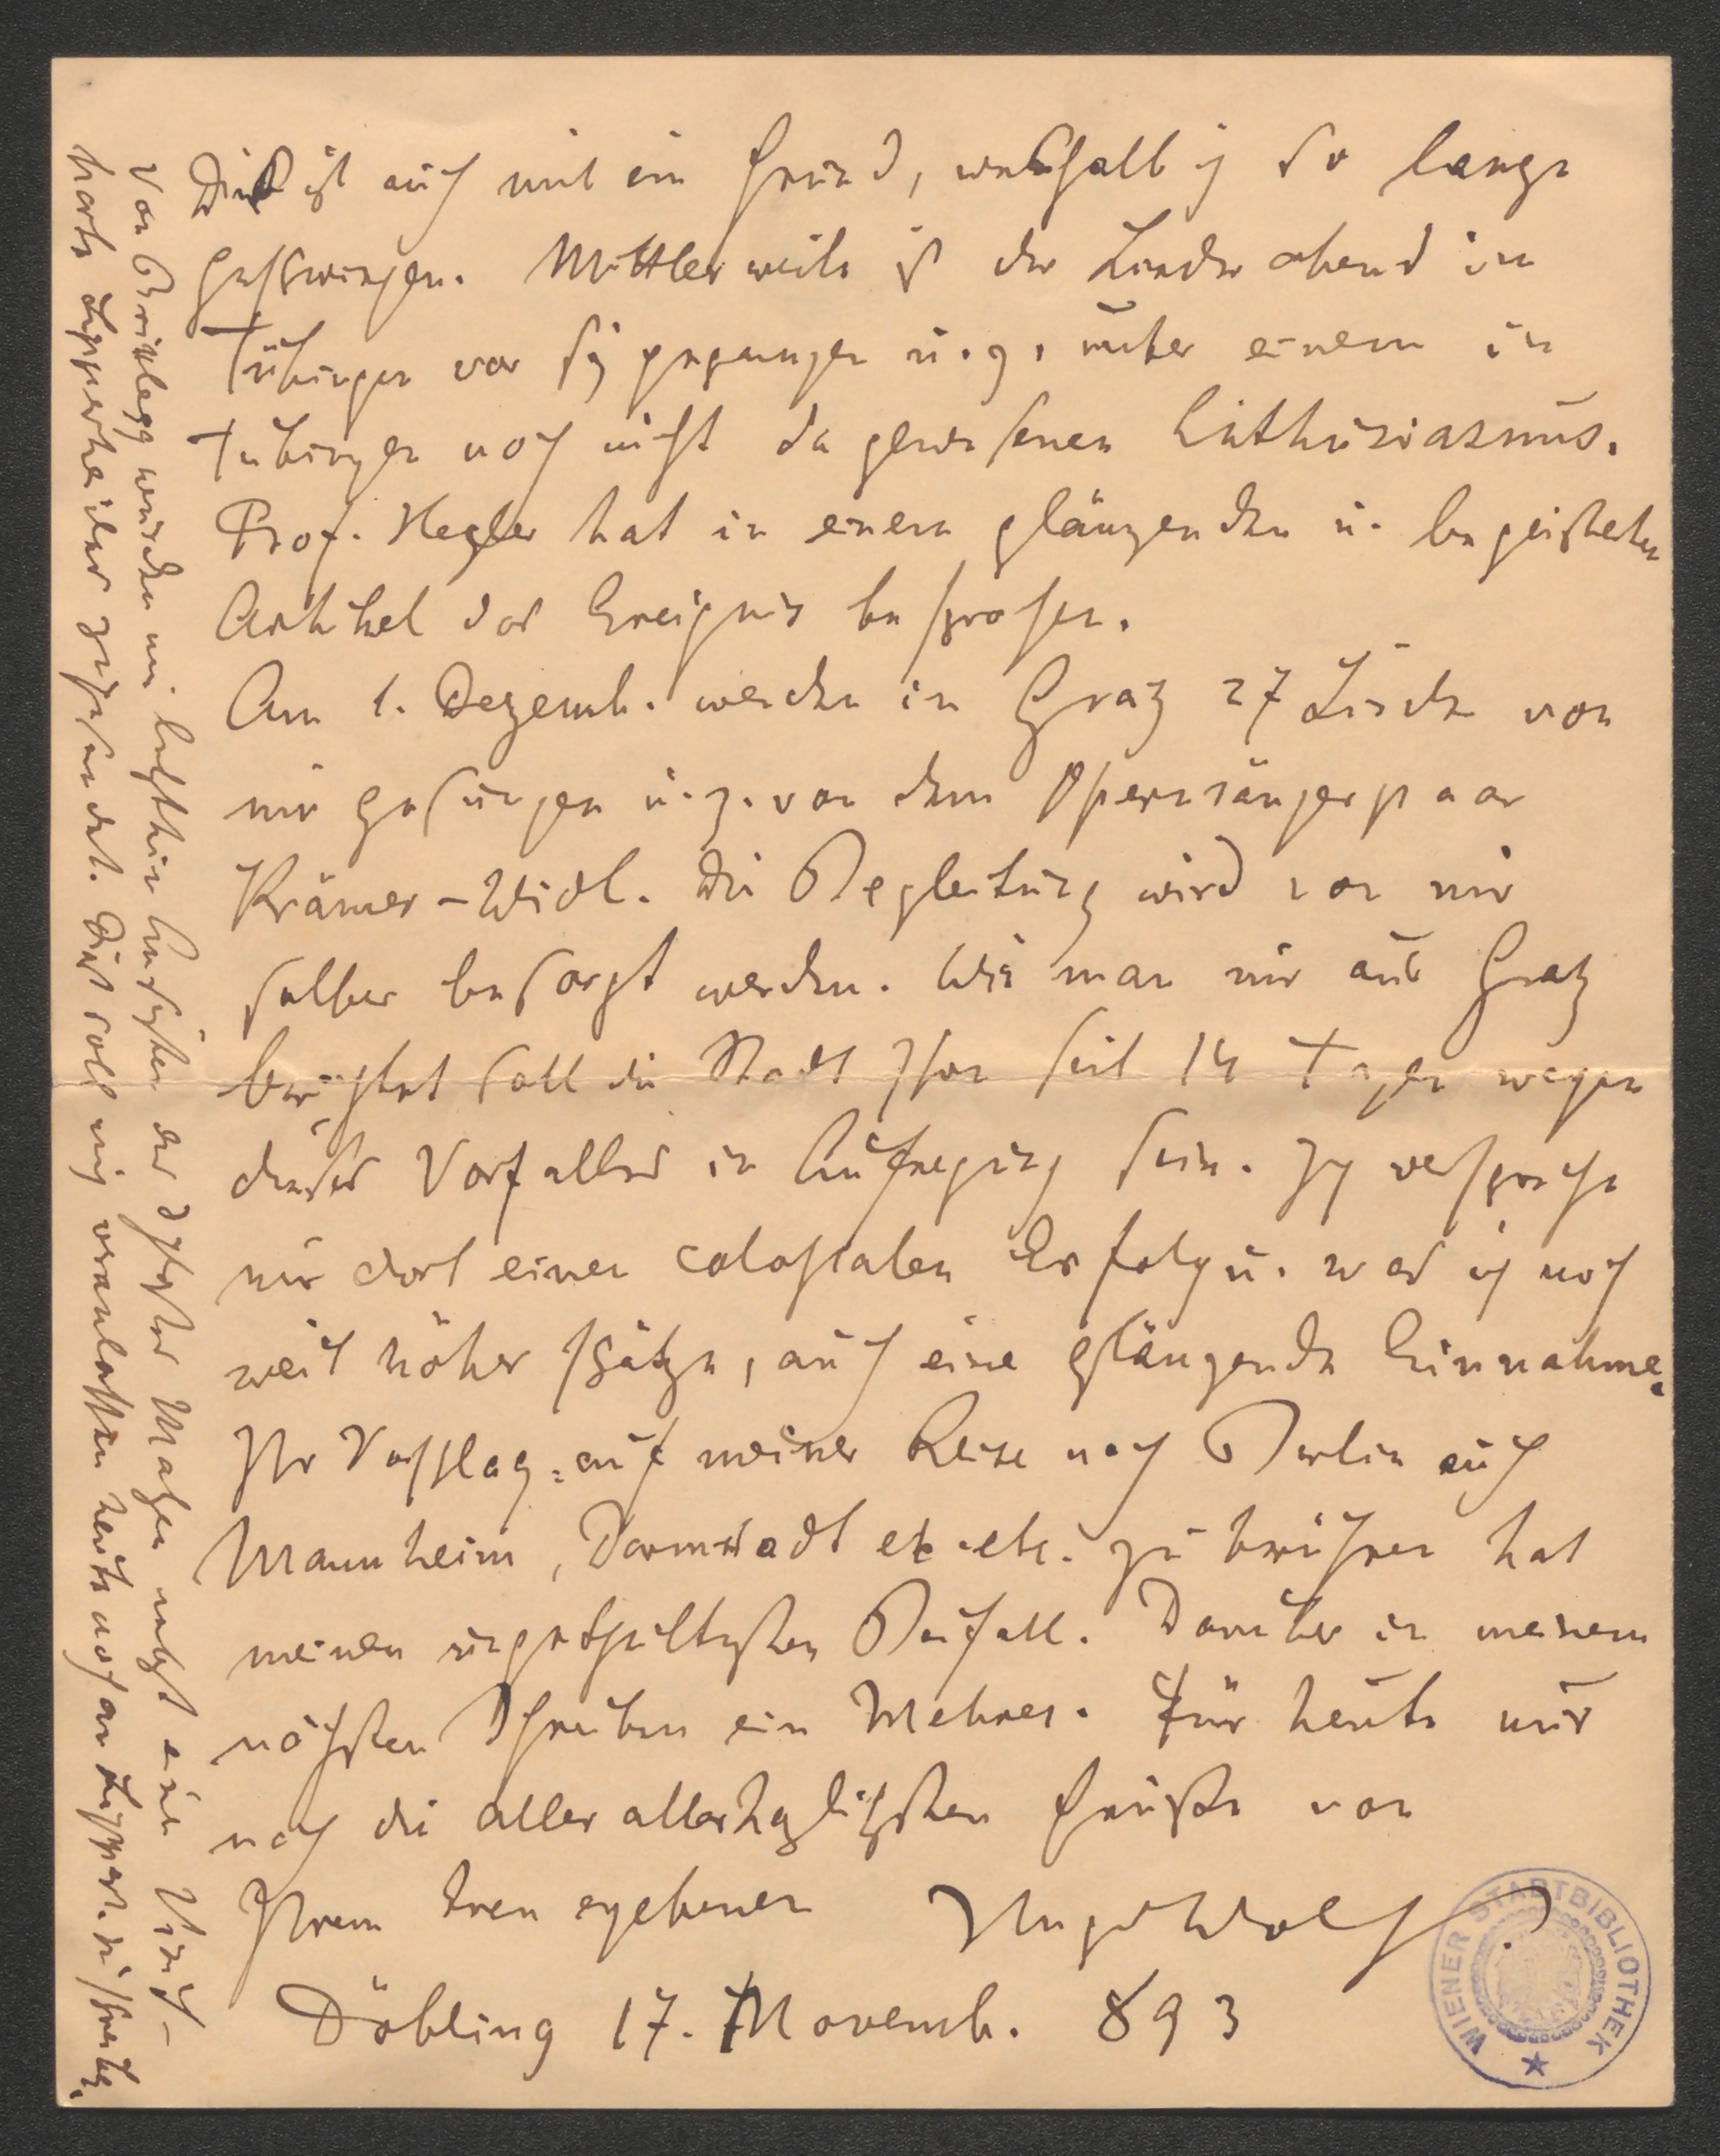 Dieß ist auch mit ein Grund, weßhalb ich so lange
geschwiegen. Mittlerweile ist der Liederabend in
Tübingen vor sich gegangen u. z. unter einem in
Tübingen noch nicht da gewesenen Enthusiasmus.
Prof. Hegler hat in einem glänzenden u. begeisterten
Artikel das Ereignis besprochen.
Am 1. Dezemb. werden in Graz 27 Lieder von
mir gesungen u. z. von dem Opernsängerpaar
Krämer-Widl. Die Begleitung wird von mir
selber besorgt werden. Wie man mir aus Graz
berichtet soll die Stadt schon seit 14 Tagen wegen
dieses Vorfalles in Aufregung sein. Ich verspreche
mir dort einen colossalen Erfolg u. was ich noch
weit höher schätze, auch eine glänzende Einnahme.
Ihr Vorschlag: auf meiner Reise nach Berlin auch
Mannheim, Darmstadt etc. etc. zu berühren hat
meinen ungetheiltesten Beifall. Darüber in meinem
nächsten Schreiben ein Mehres. Für heute nur
noch die aller allerherzlichsten Grüße von
Ihrem treu ergebenen Hugo Wolf
Döbling 17. Novemb. 893
Von Brixlegg wurden mir letzthin Ansichten der dichter Matzen nebst eine Visit-
karte Lipperheides zugesendet. Dies soll mich veranlassen heute noch an Lipperh. zu schreiben.
WIENER STADTBIBLIOTHEK